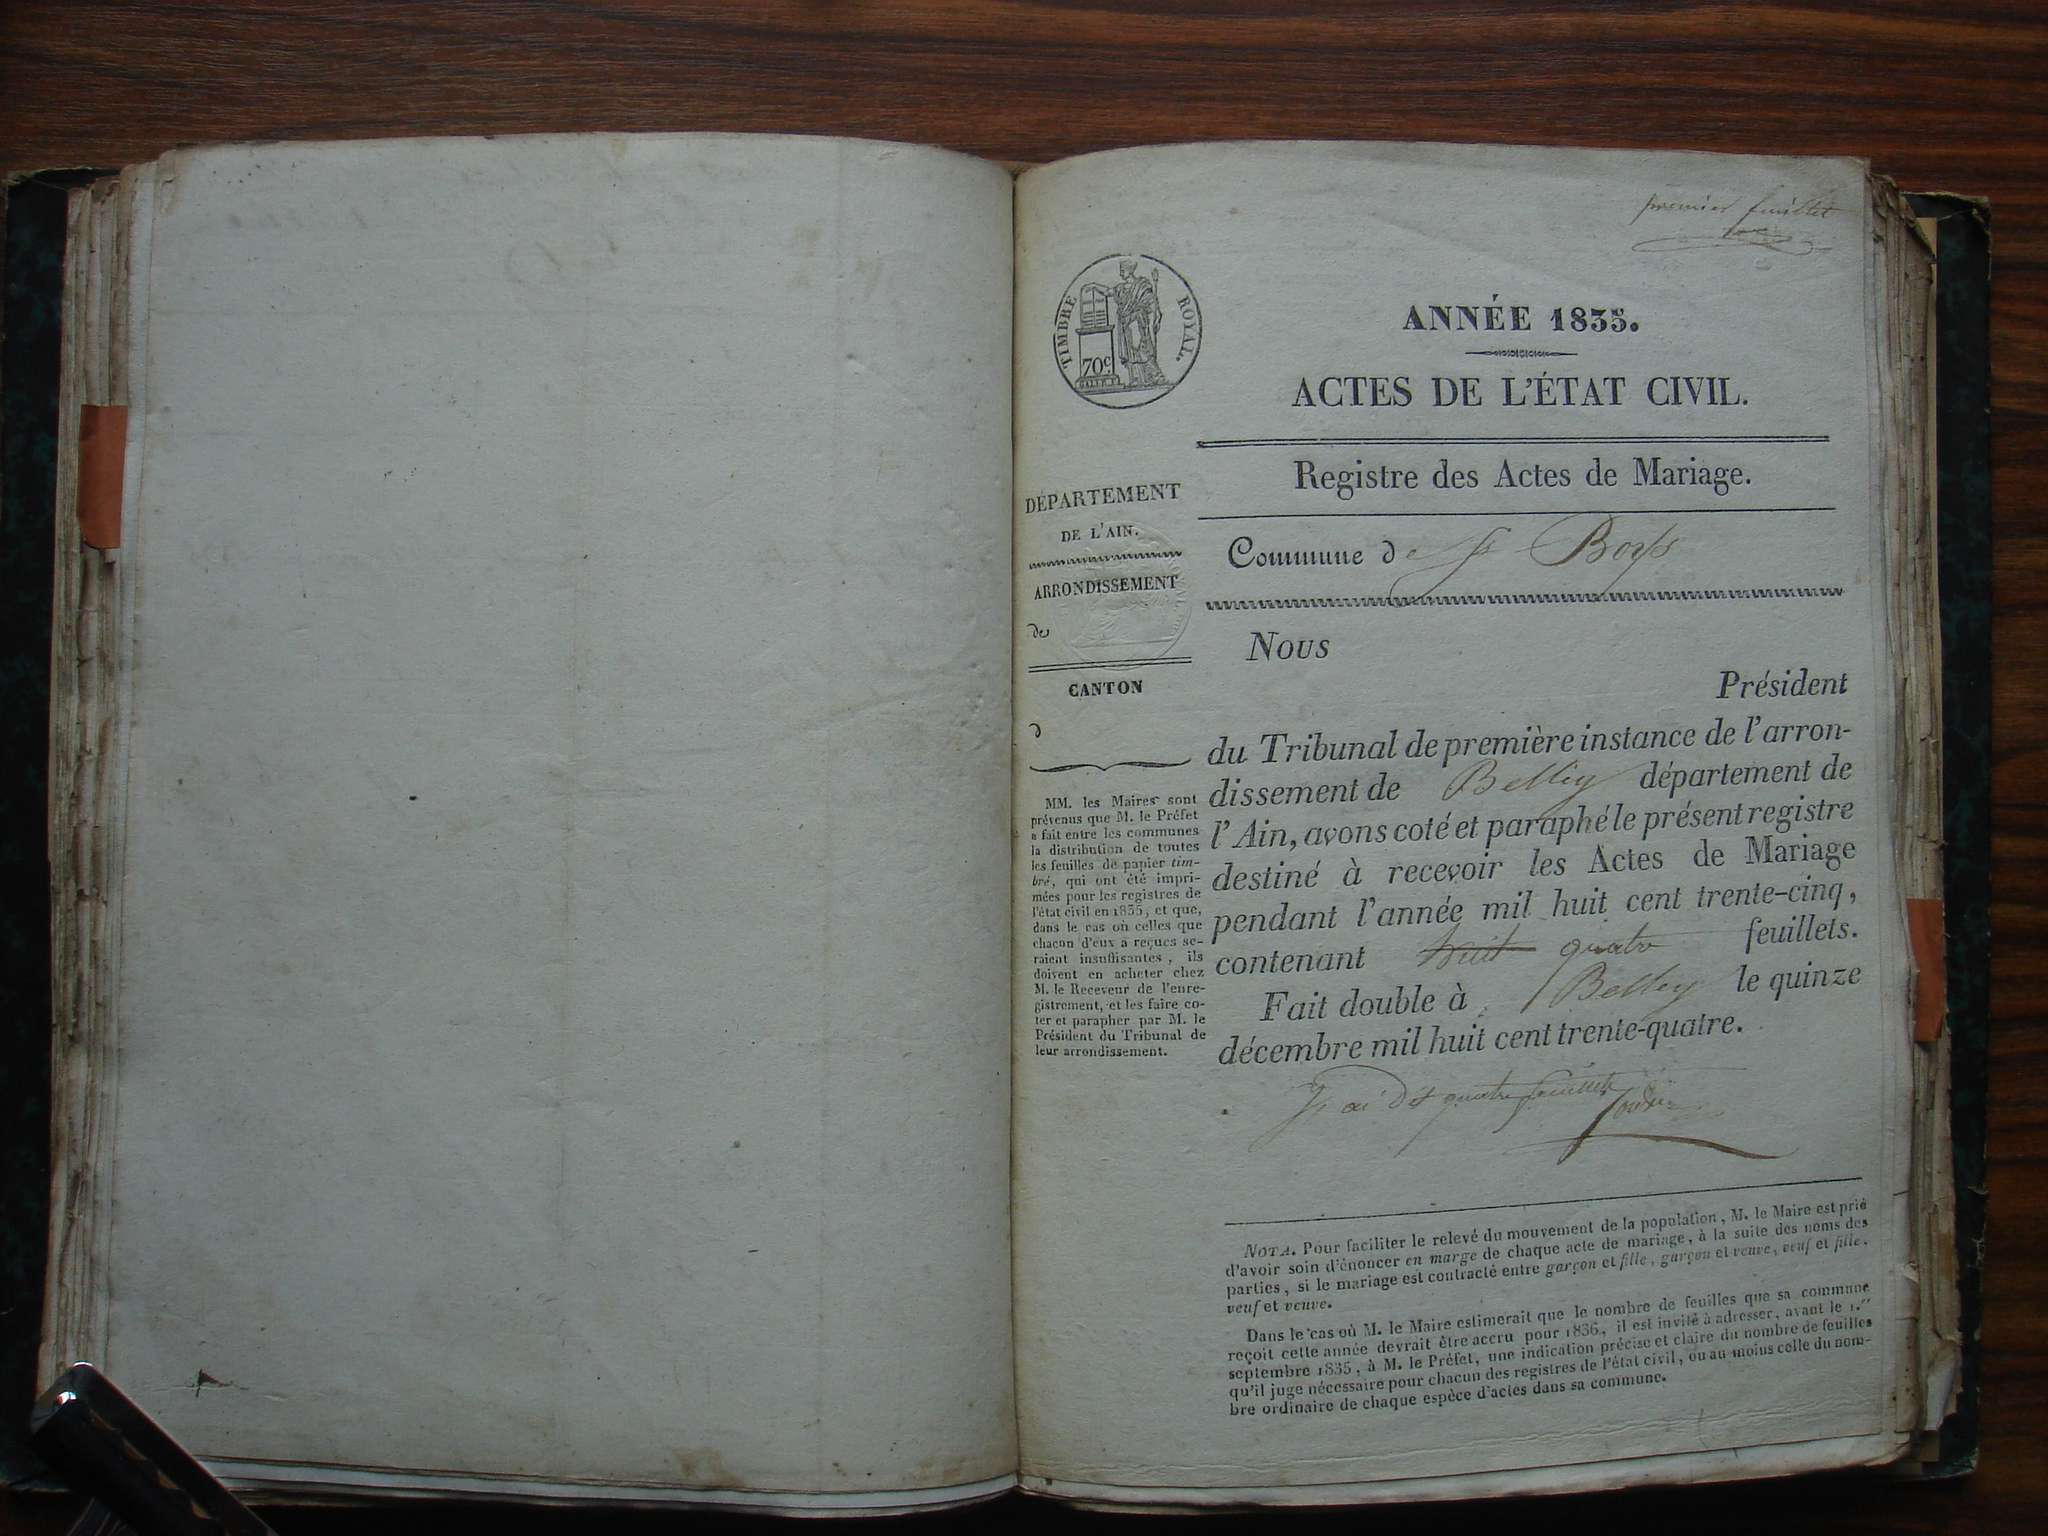 premier feuillet
TIMBRE ROYAL.
70c
ANNÉE 1835.
ACTES DE L'ÉTAT CIVIL.
Registre des Actes de Mariage.
DÉPARTEMENT
DE L'AIN.
ARRONDISSEMENT
de
CANTON
d
MM. les Maires sont
prévenus que M. le Préfet
a fait entre les communes
la distribution de toutes
les feuilles de papier tim-
bré, qui ont été impri-
mées pour les registres de
l'état civil en 1835, et que,
dans le cas où celles que
chacun d'eux a reçues se-
raient insuffisantes, ils
doivent en acheter chez
M. le Receveur de l'enre-
gistrement, et les faire co-
ter et parapher par M. le
Président du Tribunal de
leur arrondissement.
Commune de St Boys
Nous
Président
du Tribunal de première instance de l'arron-
dissement de Belley département de
l'Ain, avons coté et paraphé le présent registre
destiné à recevoir les Actes de Mariage
pendant l'année mil huit cent trente-cinq,
contenant huit quatre feuillets.
Fait double à Belley le quinze
décembre mil huit cent trente-quatre.
quatre feuillets
NOTA. Pour faciliter le relevé du mouvement de la population, M. le Maire est prié
d'avoir soin d'énoncer en marge de chaque acte de mariage, à la suite des noms des
parties, si le mariage est contracté entre garçon et fille, garçon et veuve, veuf et fille,
veuf et veuve.
Dans le cas où M. le Maire estimerait que le nombre de feuilles que sa commune
reçoit cette année devrait être accru pour 1836, il est invité à adresser, avant le 1.er
septembre 1835, à M. le Préfet, une indication précise et claire du nombre de feuilles
qu'il juge nécessaire pour chacun des registres de l'état civil, ou au moins celle du nom-
bre ordinaire de chaque espèce d'actes dans sa commune.